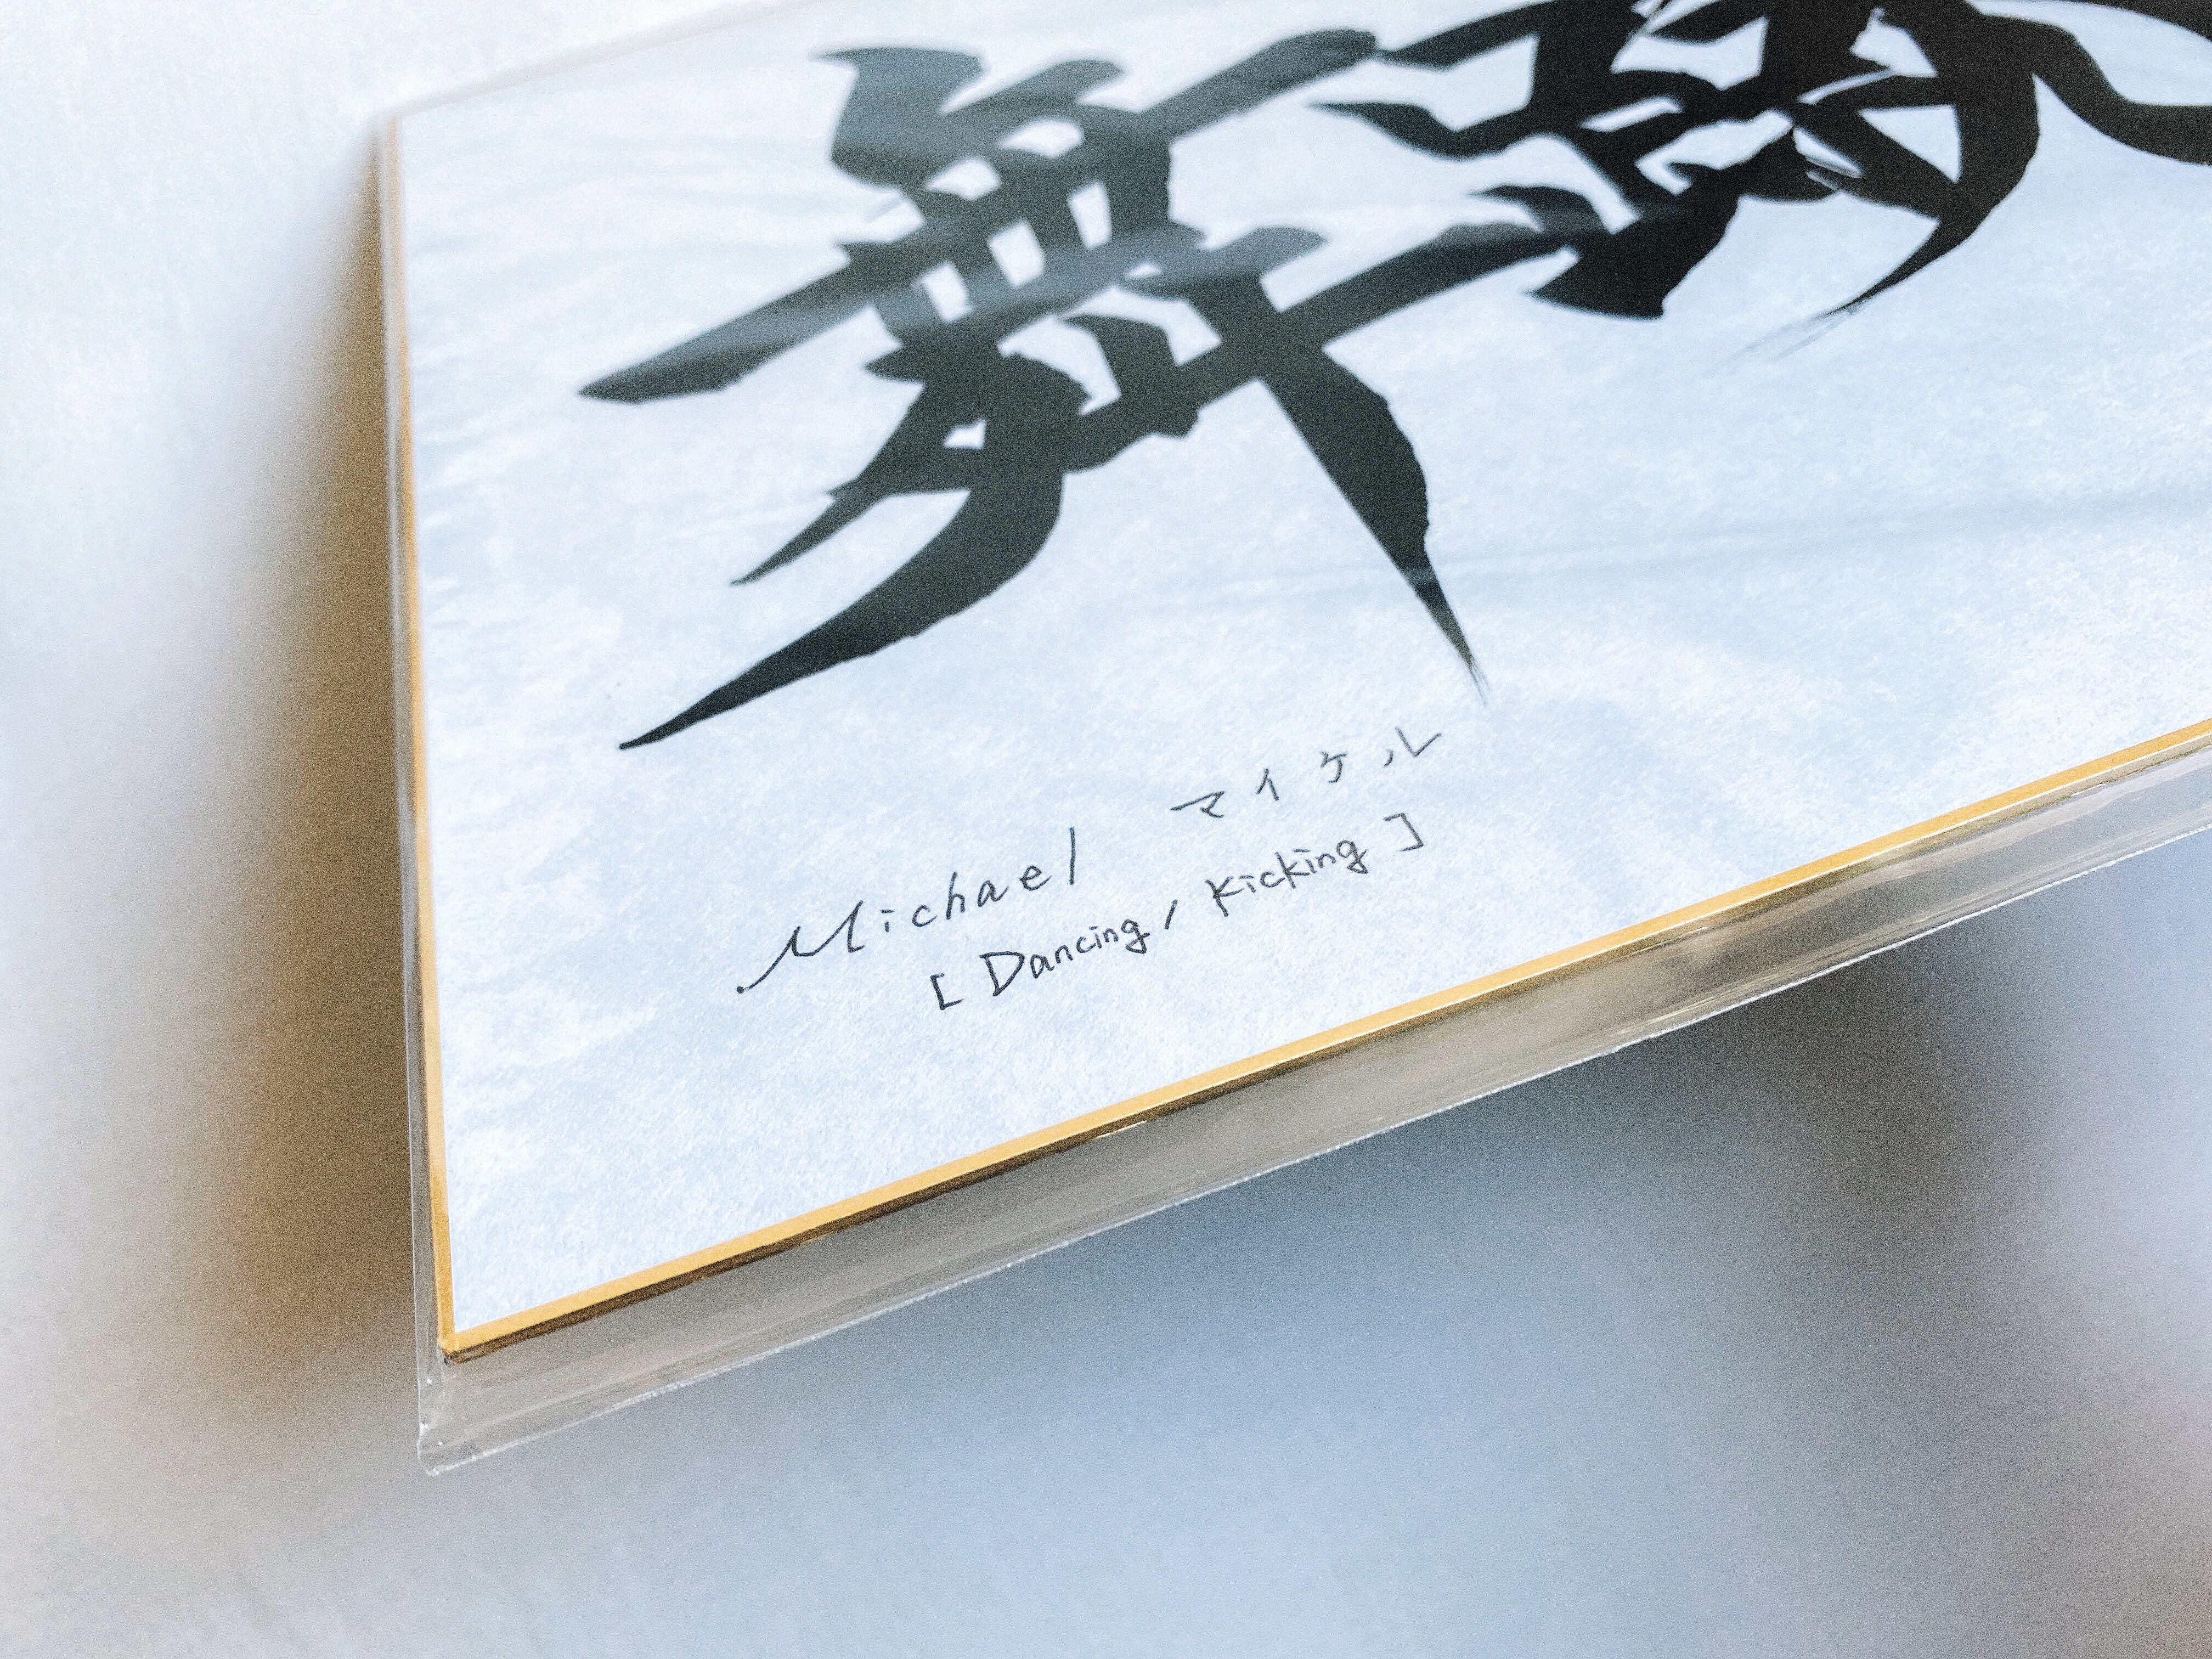 舞蹴
Michael マイケル
[ Dancing / Kicking ]